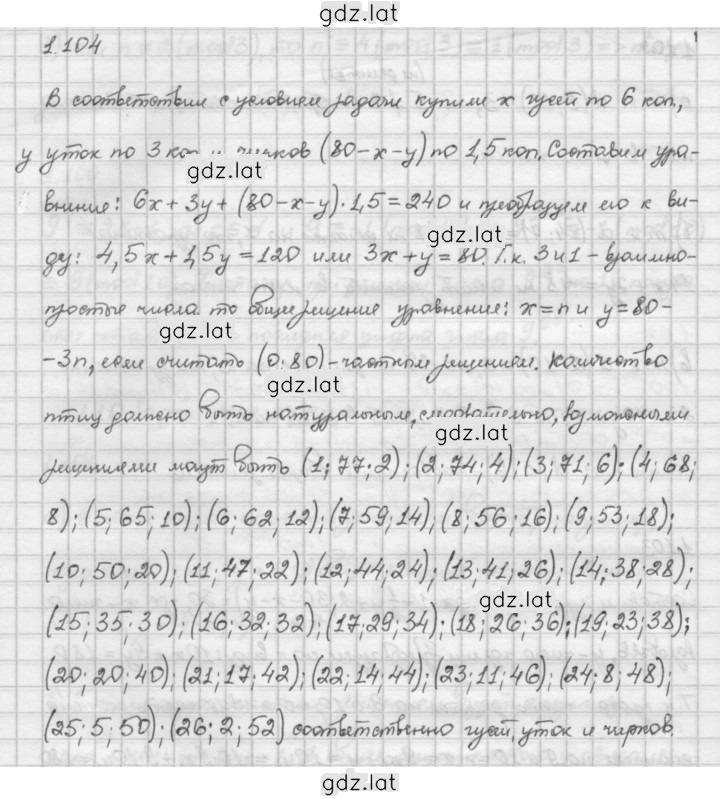 gdz.lat
1.104
В соответствии с условием задачи купили x гусей по 6 коп.,
y уток по 3 коп и чирков (80-x-y) по 1,5 коп. Составим ура-
gdz.lat
внение: 6x+3y+(80-x-y)·1,5=240 и преобразуем его к ви-
gdz.lat
ду: 4,5x+1,5y=120 или 3x+y=80. Т.к. 3 и 1 - взаимно-
простые числа то общее решение уравнение: x=n и y=80-
gdz.lat
-3n, если считать (0;80)-частным решением. Количество
gdz.lat
птиц должно быть натуральным, следовательно, возможными
gdz.lat
решениями могут быть (1;77;2);(2;74;4);(3;71;6);(4;68;
8);(5;65;10);(6;62;12);(7;59;14),(8;56;16);(9;53;18);
(10;50;20);(11;47;22);(12;44;24);(13;41;26);(14;38;28);
gdz.lat
(15;35;30);(16;32;32);(17;29;34);(18;26;36);(19;23;38);
(20;20;40);(21;17;42);(22;14;44);(23;11;46);(24;8;48);
(25;5;50);(26;2;52) соответственно гусей, уток и чирков.
gdz.lat